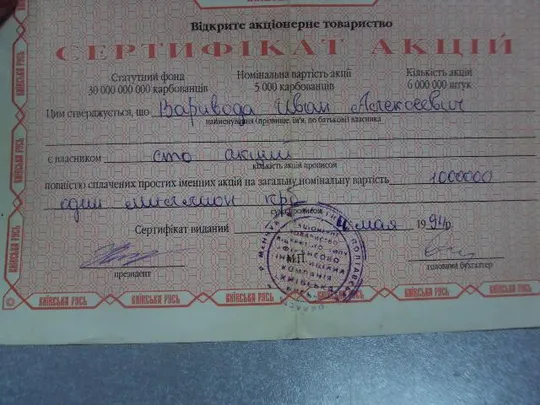 Відкрите акціонерне товариство
СЕРТИФІКАТ АКЦІЙ
Статутний фонд Номінальна вартість акції Кількість акцій
30 000 000 000 карбованців 5 000 карбованців 6 000 000 штук
Цим стверджується, що Варивода Иван Алексеевич
найменування (прізвище, ім'я, по батькові) власника
є власником сто акций
кількість акцій прописом
повністю сплачених простих іменних акцій на загальну номінальну вартість 1000000
один миллион крб
сума прописом
Сертифікат виданий 4 мая 1994р.
М.П.
президент головний бухгалтер
ФІНАНСОВО
ІНВЕСТИЦІЙНА
КОМПАНІЯ
КИЇВСЬКА
КИЇВСЬКА РУСЬ КИЇВСЬКА РУСЬ КИЇВСЬКА РУСЬ КИЇВСЬКА РУСЬ КИЇВСЬКА РУСЬ